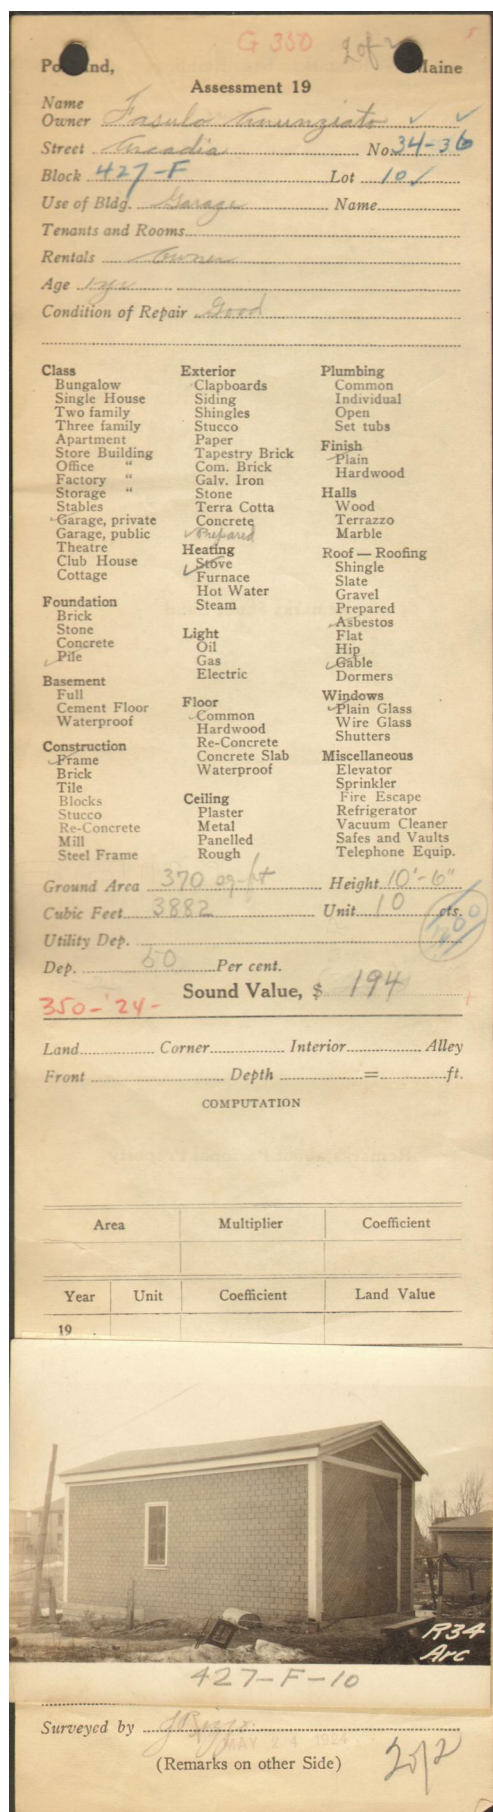 G 350 2 of 2
Po nd, Maine
Assessment 19
Name
Owner Fasulo Annunziato
Street Arcadia No 34-36
Block 427-F Lot 10
Use of Bldg. Garage Name
Tenants and Rooms
Rentals Owner
Age 1 yr
Condition of Repair Good
Class
Bungalow
Single House
Two family
Three family
Apartment
Store Building
Office "
Factory "
Storage "
Stables
Garage, private
Garage, public
Theatre
Club House
Cottage
Foundation
Brick
Stone
Concrete
Pile
Basement
Full
Cement Floor
Waterproof
Construction
Frame
Brick
Tile
Blocks
Stucco
Re-Concrete
Mill
Steel Frame
Exterior
Clapboards
Siding
Shingles
Stucco
Paper
Tapestry Brick
Com. Brick
Galv. Iron
Stone
Terra Cotta
Concrete
Prepared
Heating
Stove
Furnace
Hot Water
Steam
Light
Oil
Gas
Electric
Floor
Common
Hardwood
Re-Concrete
Concrete Slab
Waterproof
Ceiling
Plaster
Metal
Panelled
Rough
Plumbing
Common
Individual
Open
Set tubs
Finish
Plain
Hardwood
Halls
Wood
Terrazzo
Marble
Roof — Roofing
Shingle
Slate
Gravel
Prepared
Asbestos
Flat
Hip
Gable
Dormers
Windows
Plain Glass
Wire Glass
Shutters
Miscellaneous
Elevator
Sprinkler
Fire Escape
Refrigerator
Vacuum Cleaner
Safes and Vaults
Telephone Equip.
Ground Area 370 sq-ft Height 10'-6"
Cubic Feet 3882 Unit 10 cts.
Utility Dep.
Dep. 50 Per cent.
Sound Value, $ 194
350-'24-
Land Corner Interior Alley
Front Depth = ft.
COMPUTATION
Area Multiplier Coefficient
Year Unit Coefficient Land Value
19
R34
Arc
427-F-10
Surveyed by
MAY 24 1924
(Remarks on other Side)
2 of 2